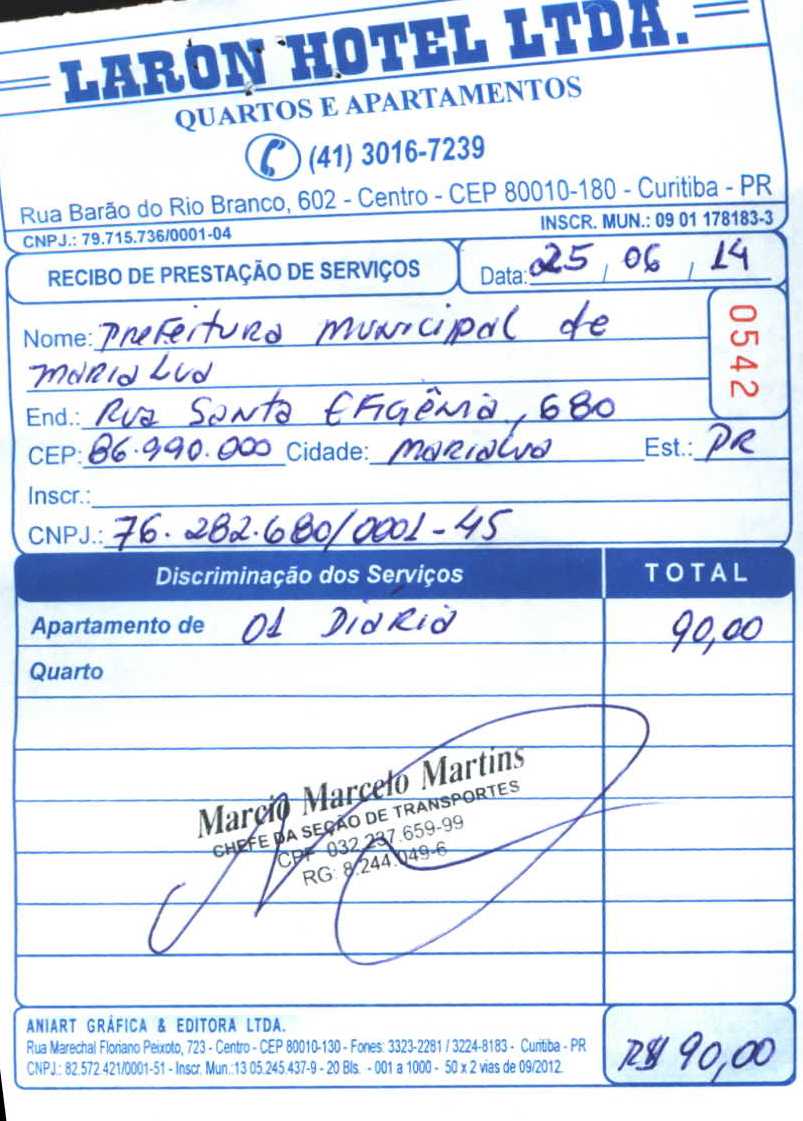 LARON HOTEL LTDA.
QUARTOS E APARTAMENTOS
(41) 3016-7239
Rua Barão do Rio Branco, 602 - Centro - CEP 80010-180 - Curitiba - PR
CNPJ.: 79.715.736/0001-04 INSCR. MUN.: 09 01 178183-3
RECIBO DE PRESTAÇÃO DE SERVIÇOS Data: 25 / 06 / 14
Nome: Prefeitura municipal de
marialva
0542
End.: Rua Santa Efigênia, 680
CEP: 86.990.000 Cidade: marialva Est.: PR
Inscr.:
CNPJ.: 76.282.680/0001-45
Discriminação dos Serviços TOTAL
Apartamento de 01 Diaria 90,00
Quarto
Marcio Marcelo Martins
CHEFE DA SEÇÃO DE TRANSPORTES
CPF 032.237.659-99
RG: 8.244.049-6
ANIART GRÁFICA & EDITORA LTDA.
Rua Marechal Floriano Peixoto, 723 - Centro - CEP 80010-130 - Fones: 3323-2281 / 3224-8183 - Curitiba - PR
CNPJ.: 82.572.421/0001-51 - Inscr. Mun.:13 05.245.437-9 - 20 Bls. - 001 a 1000 - 50 x 2 vias de 09/2012.
R$ 90,00